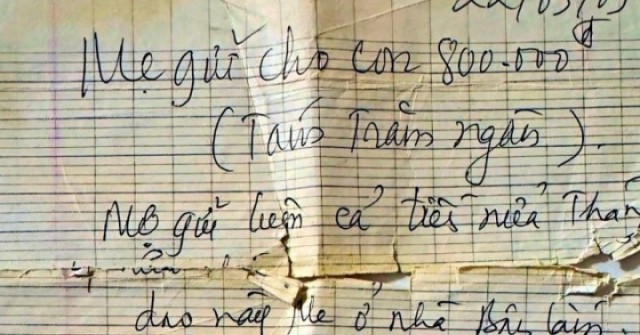 22/03/05
Mẹ gửi cho con 800.000đ
(Tám Trăm ngàn).
Mẹ gửi luôn cả tiền nửa Thán
dạo này Mẹ ở nhà Bận làm